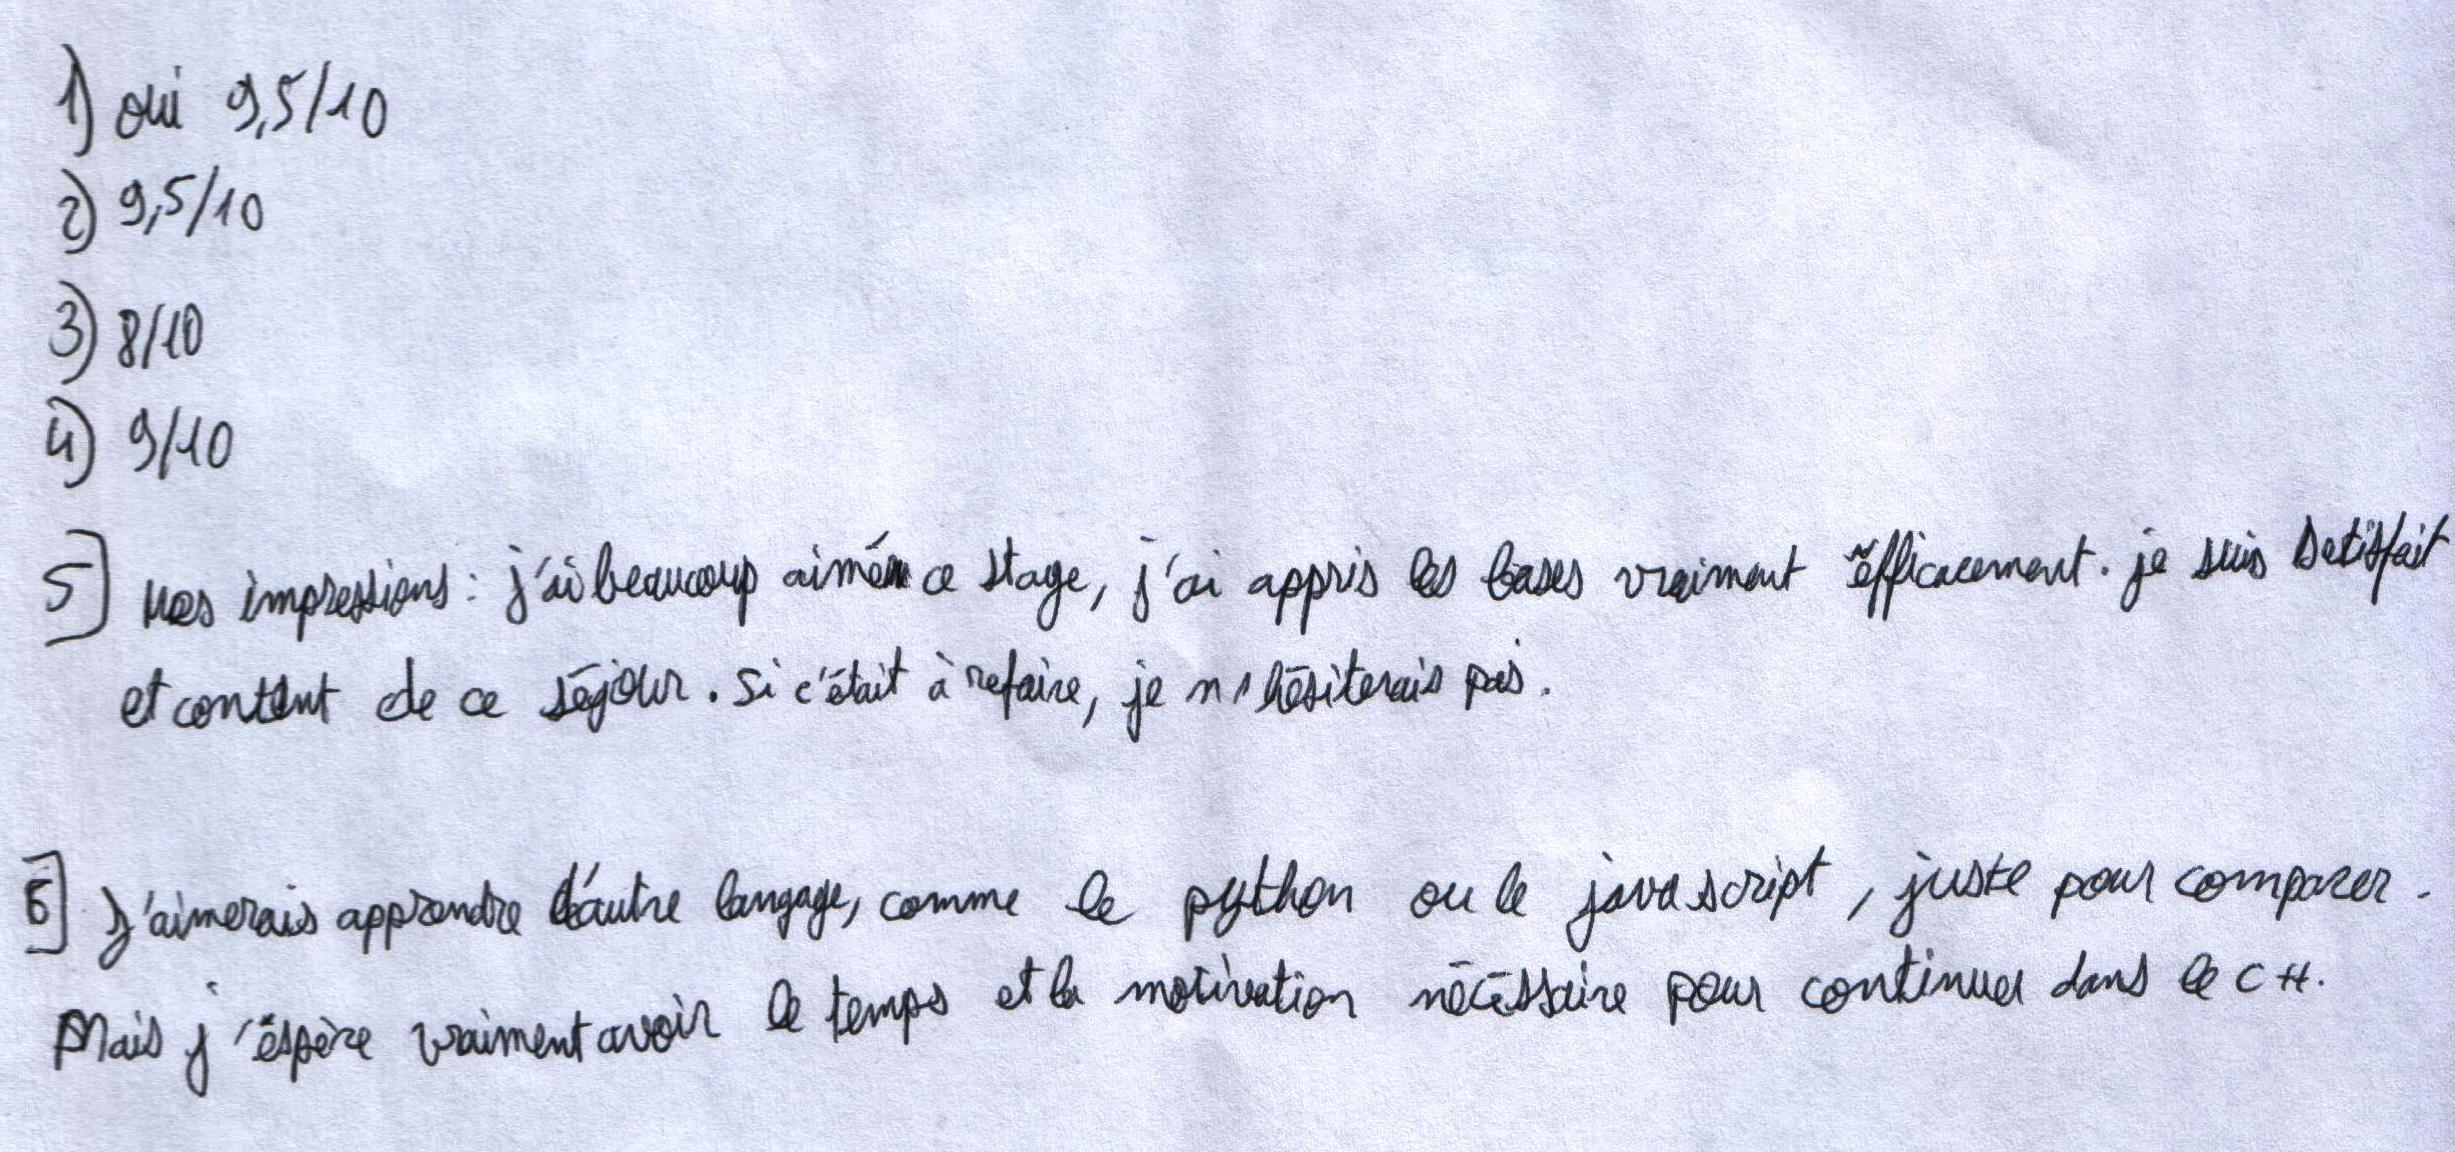 1) oui 9,5/10
2) 9,5/10
3) 8/10
4) 9/10
5] mes impressions : j'ai beaucoup aimé ce stage, j'ai appris les bases vraiment éfficacement. je suis satisfait
et content de ce séjour. Si c'était à refaire, je n'hésiterais pas.
6] J'aimerais apprendre d'autre langage, comme le python ou le javascript, juste pour comparer.
Mais j'éspère vraiment avoir le temps et la motivation nécéssaire pour continuer dans le C++.